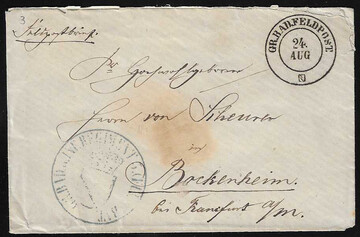 3
Feldpostbrief.
GR.BAD.FELDPOST
24.
AUG
Sr Hochwohlgeboren
Herrn von Scheurer
in
Bockenheim.
bei Frankfurt a/m.
INF. REGIMENT